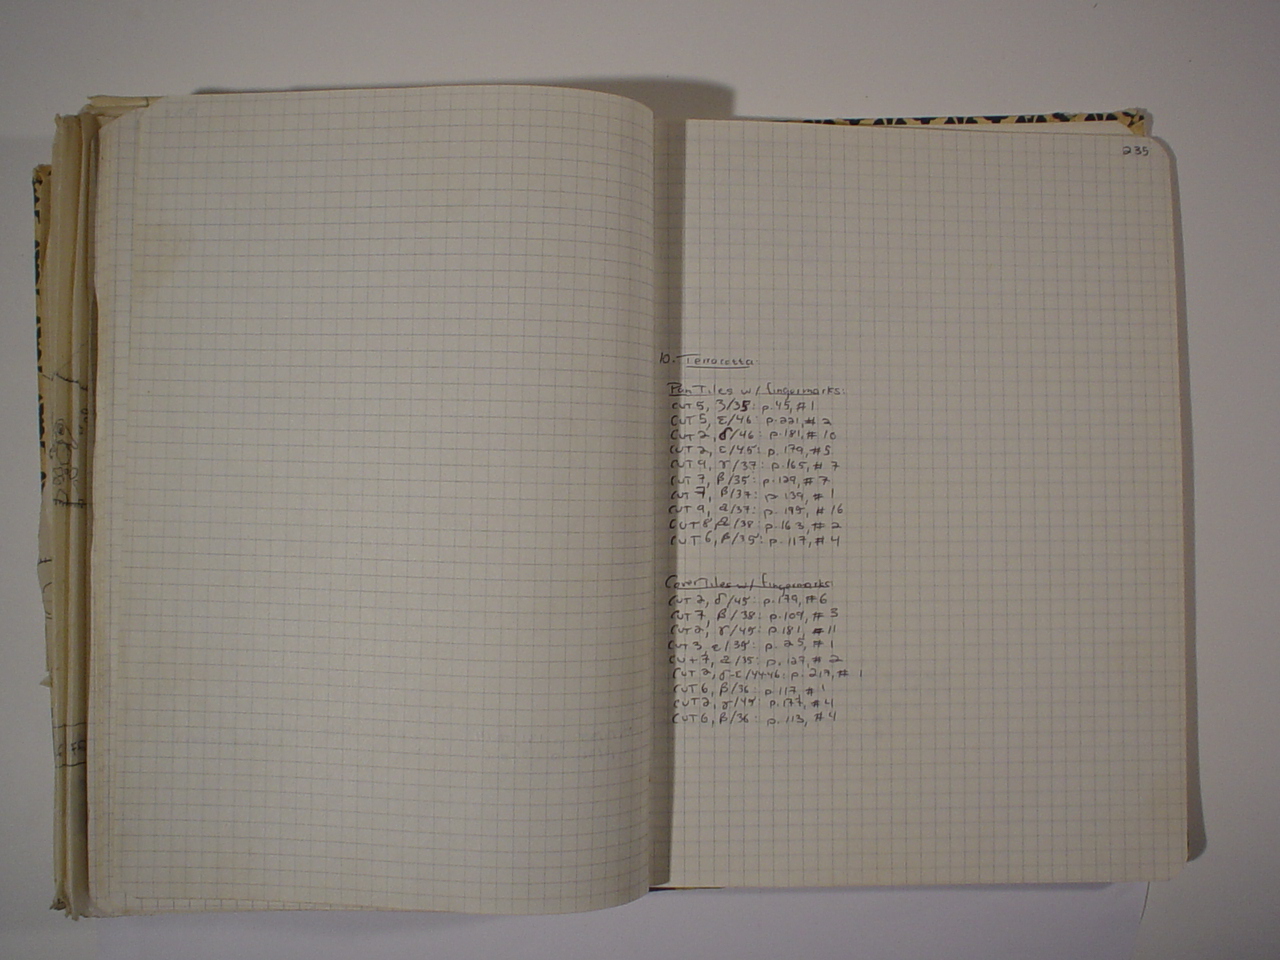 235
10. Terracotta:
Pan Tiles w/ fingermarks:
CUT 5, 3/35: p.45, #1
CUT 5, ε/46: p.221, #2
CUT 2, δ/46: p.181, #10
CUT 2, ε/45: p.179, #5
CUT 9, γ/37: p.165, #7
CUT 7, β/35: p.129, #7
CUT 7, β/37: p.139, #1
CUT 9, /37: p.195, #16
CUT 8 /38: p.163, #2
CUT 6, β/35: p.117, #4
Cover Tiles w/ fingermarks:
CUT 2, δ/45: p.179, #6
CUT 7, β/38: p.109, #3
CUT 2, γ/45: p.181, #11
CUT 3, ε/35: p.25, #1
CUT 7, /35: p.127, #2
CUT 2, δ-ε/44-46: p.217, #1
CUT 6, β/36: p.117, #1
CUT 2, γ/45: p.177, #4
CUT 6, β/36: p.113, #4